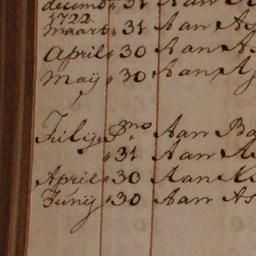 decemb 31 Aan
1722.
maart 31 Aan As
April 30 Aan A
maÿ 30 Aan A
Julij Pmo Aan Ba
31 Aan
April 30 Aan
Junÿ 30 Aan As